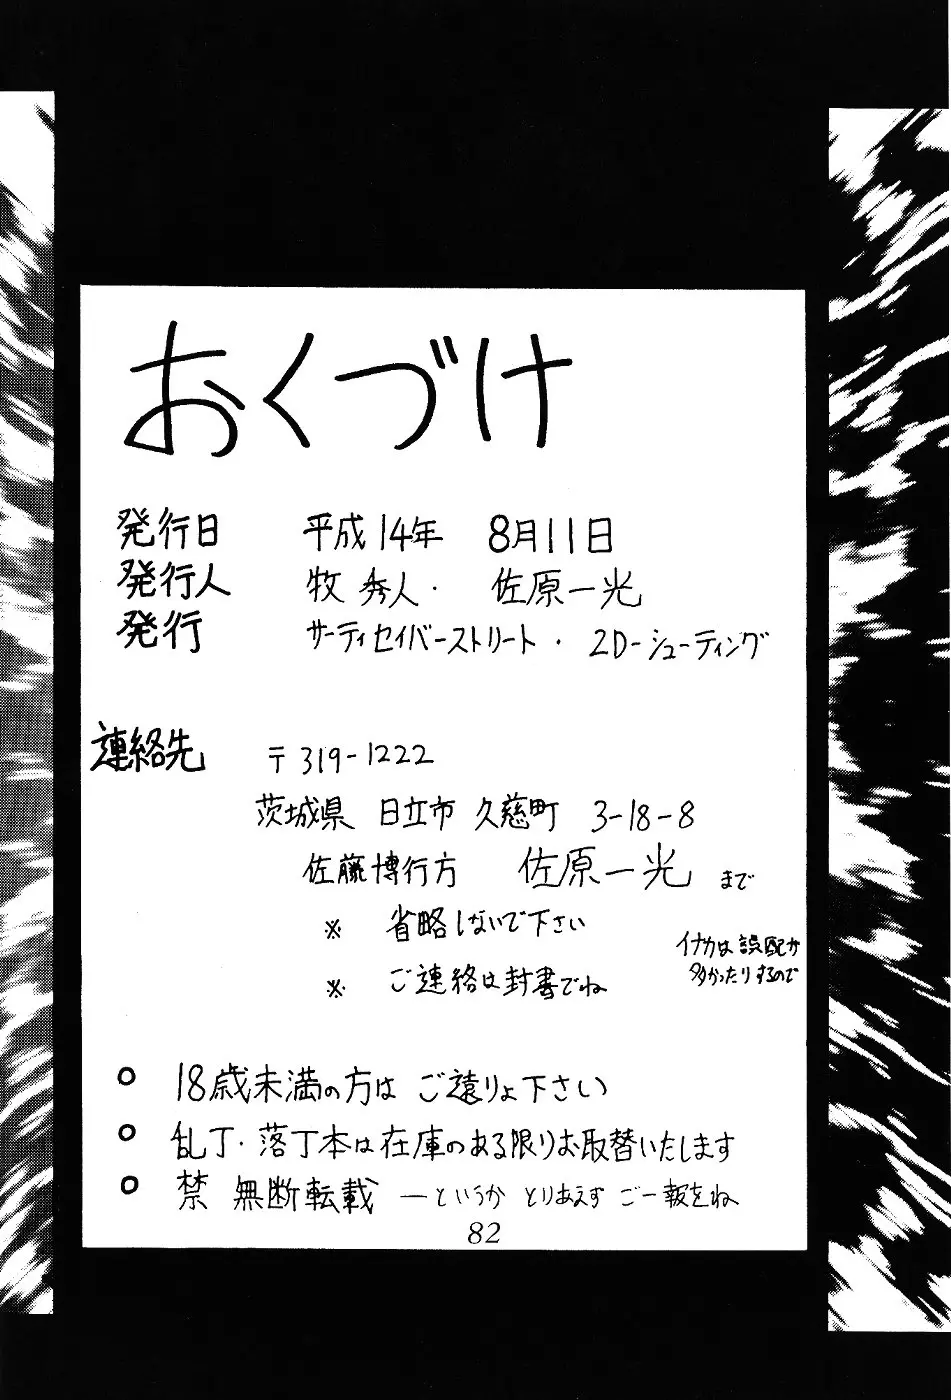 おくづけ
発行日 平成14年 8月11日
発行人 牧 秀人・ 佐原一光
発行 サーティセイバーストリート・2D-シューティング
連絡先 〒319-1222
茨城県 日立市 久慈町 3-18-8
佐藤博行方 佐原一光 まで
※ 省略しないで下さい
※ ご連絡は封書でね
イナカは誤配が
多かったりするので
○ 18歳未満の方は ご遠りょ下さい
○ 乱丁・落丁本は在庫のある限りお取替いたします
○ 禁 無断転載 ―というか とりあえず ご一報をね
82